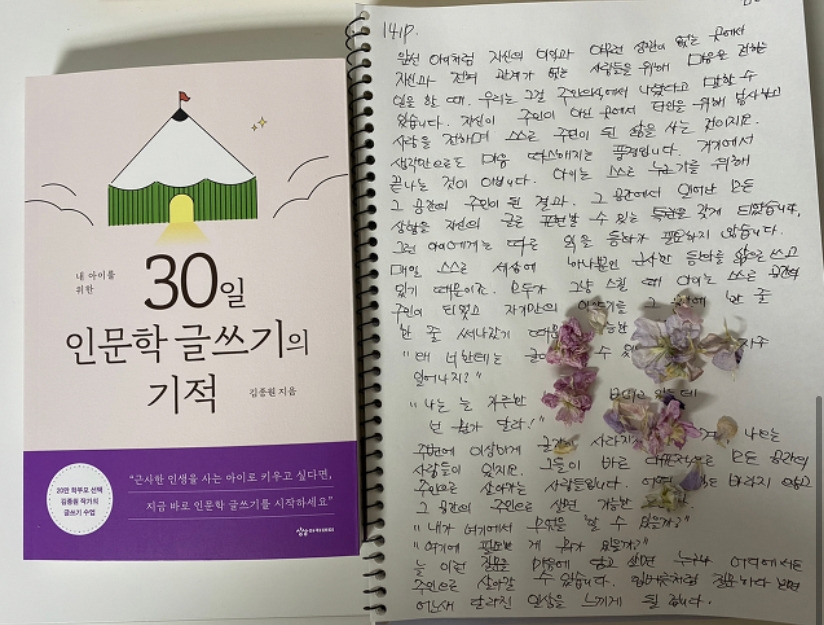 내 아이를
위한
30일
인문학 글쓰기의
기적
김종원 지음
20만 학부모 선택
김종원 작가식
글쓰기 수업
“근사한 인생을 사는 아이로 키우고 싶다면,
지금 바로 인문학 글쓰기를 시작하세요”
상상아카데미
141p.
앞선 아이처럼 자신의 이익과 아무런 상관이 없는 곳에서
자신과 전혀 관계가 없는 사람들을 위해 마음을 전하는
일을 할 때, 우리는 그걸 주인의식에서 나왔다고 말할 수
있습니다. 자신이 주인이 아닌 곳에서 타인을 위해 봉사하고
사랑을 전하며 스스로 주인이 된 삶을 사는 것이지요.
생각만으로도 마음 따스해지는 풍경입니다. 거기에서
끝나는 것이 아닙니다. 아이는 스스로 누군가를 위해
그 공간의 주인이 된 결과, 그 공간에서 일어난 모든
상황을 자신의 글로 표현할 수 있는 특권을 갖게 되었습니다.
그런 아이에게는 따로 억 동화가 필요하지 않습니다.
매일 스스로 세상에 하나뿐인 근사한 동화를 삶으로 쓰고
있기 때문이죠. 모두가 그냥 스칠 때 아이는 스스로 공간의
주인이 되었고 자기만의 이야기를 그 한 줄
한 줄 써나갔기
“왜 너한테는 수 자주
일어나지?”
“나는 늘
넌 뭔가 달라!”
주변에 이상하게 나오는
사람들이 있지요. 그들이 바로 모든 공간의
주인으로 살아가는 사람들입니다. 바라지 않고
그 공간의 주인으로 살면 가능한
“내가 여기에서 무엇을 할 수 있을까?”
“여기에 필요한 게 뭐가 있을까?”
늘 이런 질문을 마음에 담고 살면 누구나 어디에서든
주인으로 살아갈 수 있습니다. 질문하다 보면
어느새 달라진 일상을 느끼게 될 겁니다.